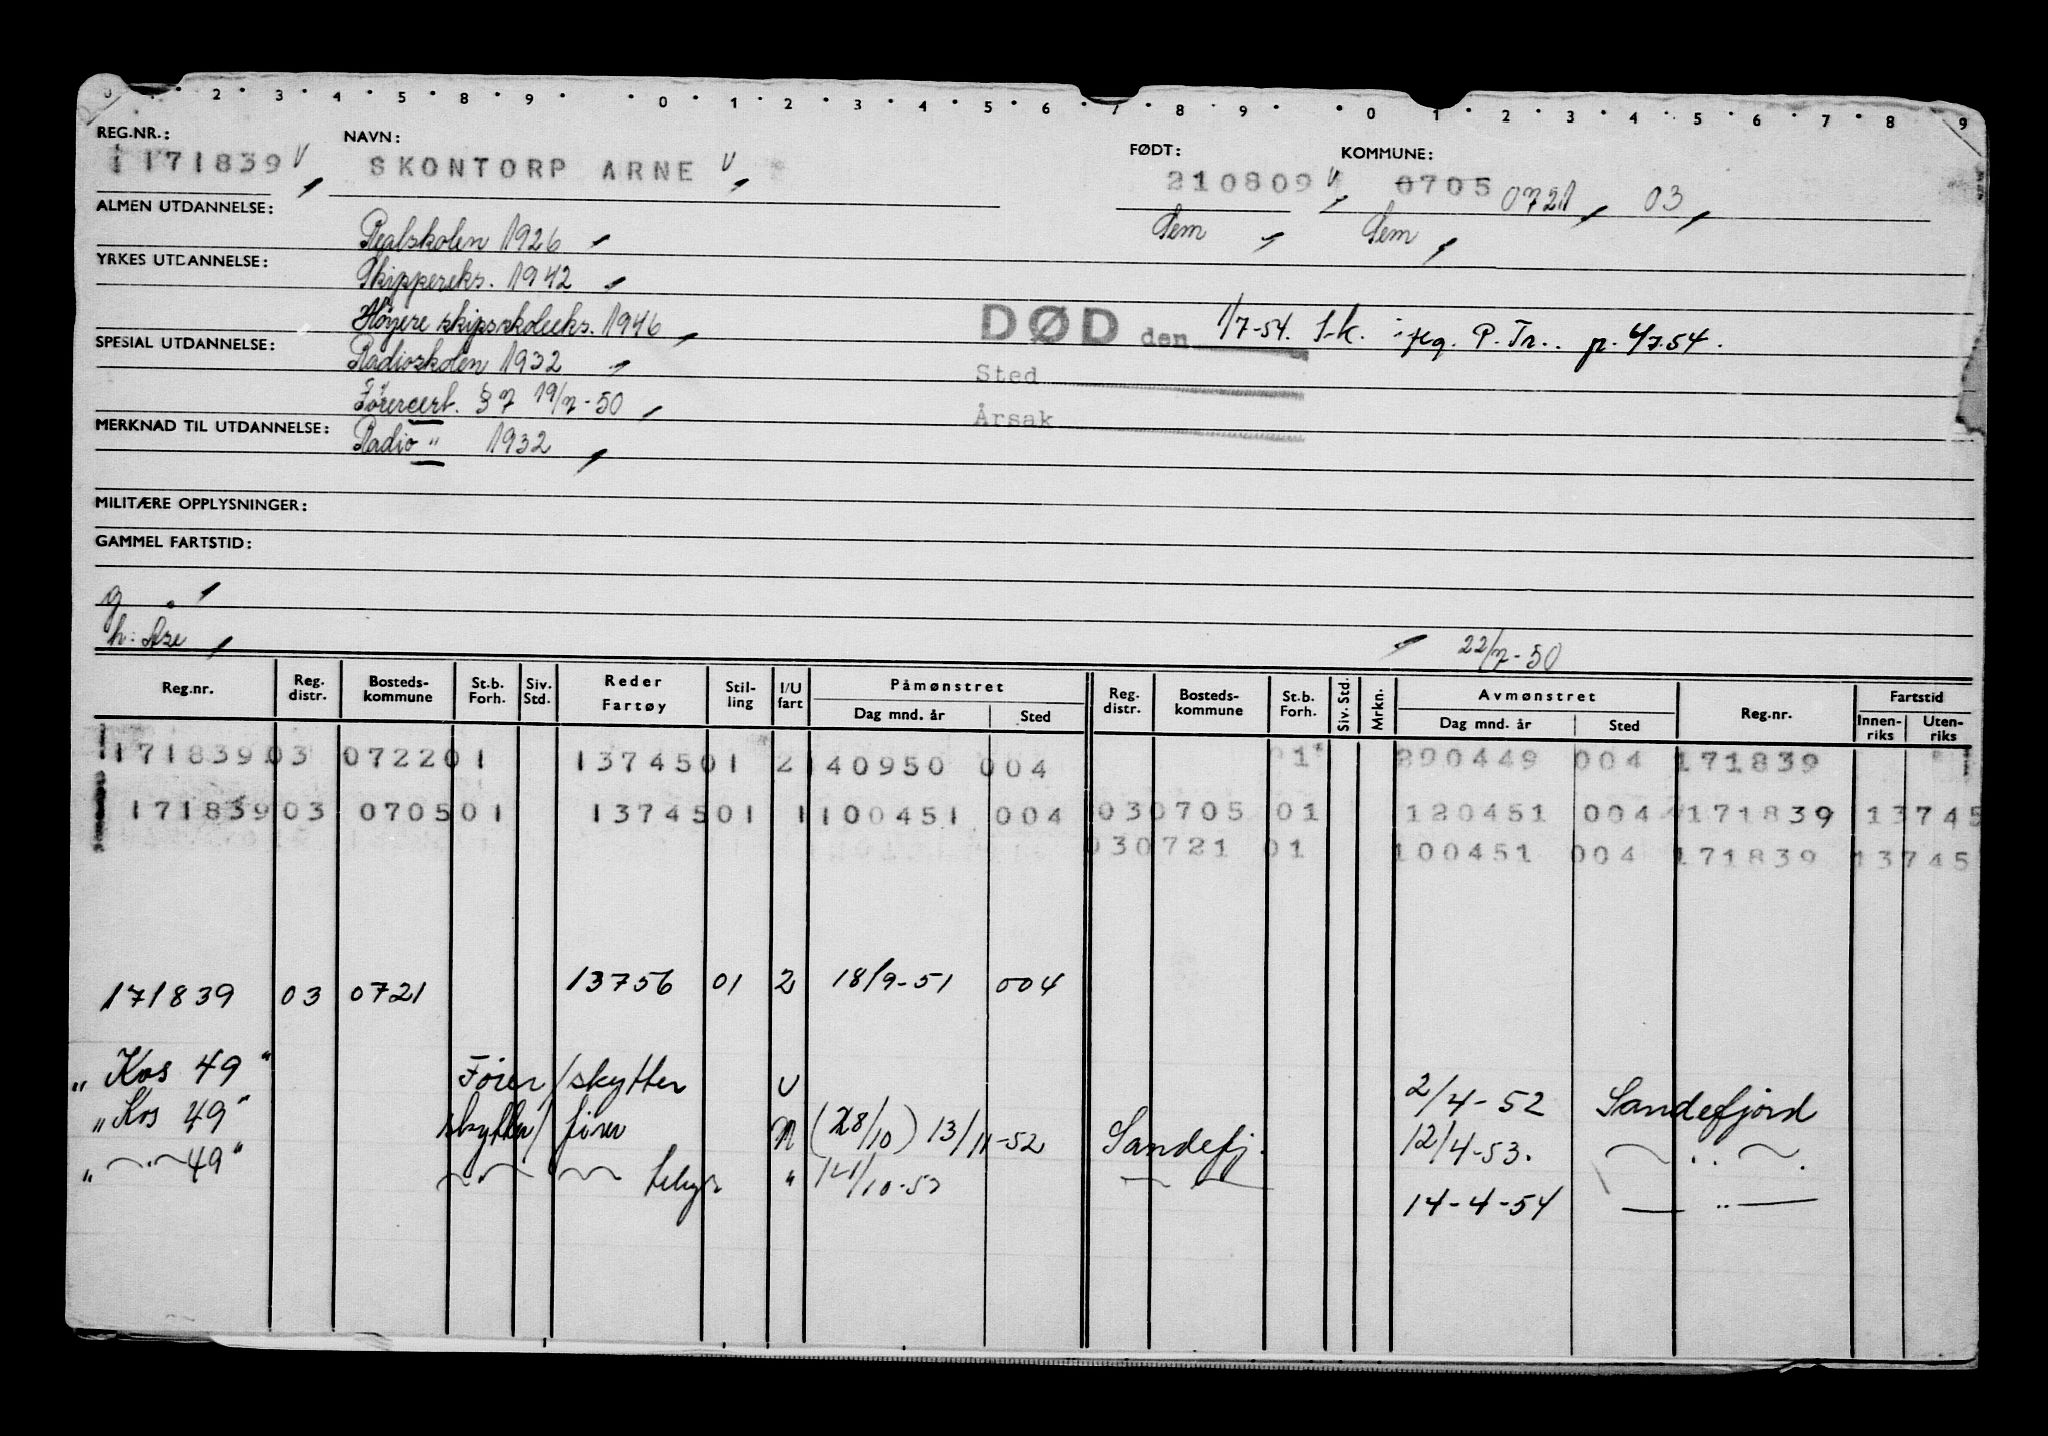 0 2 3 4 5 8 9 0 1 2 3 4 5 6 7 8 9 0 1 2 3 4 5 6 7 8 9
REG.NR.: NAVN: FØDT: KOMMUNE:
171839 SKONTORP ARNE 210809 0705 0721 03
ALMEN UTDANNELSE: Realskolen 1926 Sem Sem
YRKES UTDANNELSE: Skippereks. 1942
Höyere skipsskoleeks. 1946 DØD den 1/7-54. i flg. P. Tr.. p. 6/7.54.
SPESIAL UTDANNELSE: Radioskolen 1932 Sted
Förercert. § 7 19/7-50 Årsak
MERKNAD TIL UTDANNELSE: Radio " 1932
MILITÆRE OPPLYSNINGER:
GAMMEL FARTSTID:
g.
h: 22/7-50
Reg.nr. Reg. distr. Bosteds-kommune St.b. Forh. Siv. Std. Reder Fartøy Stil-ling I/U fart Påmønstret Dag mnd. år Sted Reg. distr. Bosteds-kommune St.b. Forh. Siv. Std. Mrkn. Avmønstret Dag mnd. år Sted Reg.nr. Fartstid Innen-riks Uten-riks
171839 03 0722 01 13745 01 2 140950 004 01 290449 004 171839
171839 03 0705 01 13745 01 1 100451 004 03 0705 01 120451 004 171839 13745
03 0721 01 100451 004 171839 13745
171839 03 0721 13756 01 2 18/9-51 004
"Kos 49" Förer/skytter U 2/4-52 Sandefjord
"Kos 49" skytter/förer (28/10) 13/11-52 Sandefj. 12/4-53. " .
" " 49" " " 14/10-53 " 14-4-54 "